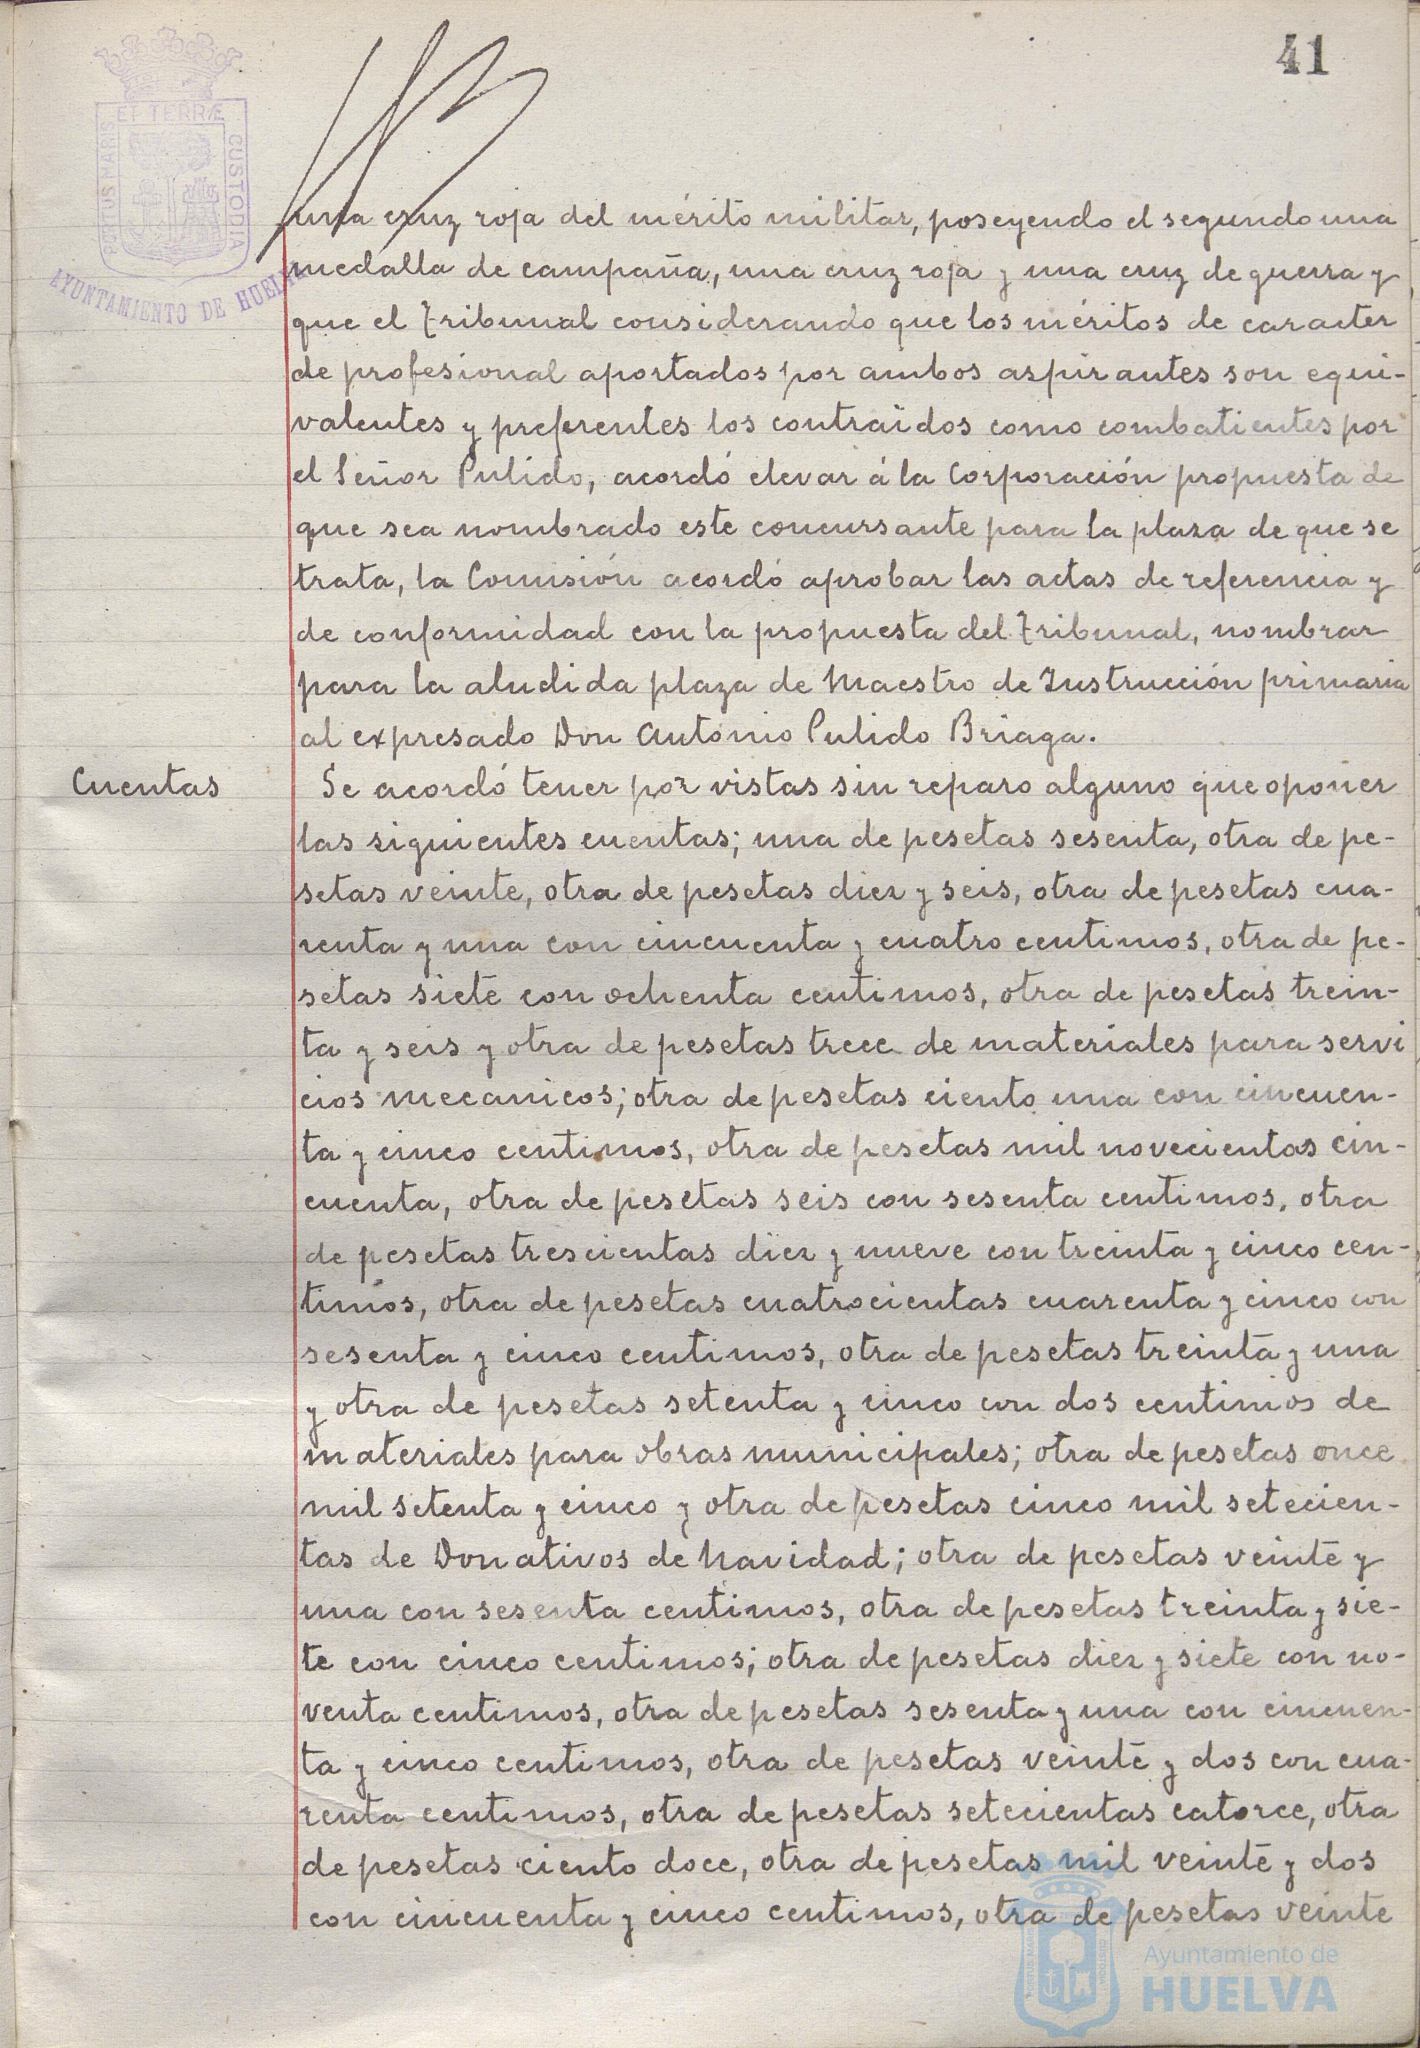 41
PORTUS MARIS ET TERRÆ CUSTODIA
AYUNTAMIENTO DE HUELVA
una cruz roja del mérito militar, poseyendo el segundo una
medalla de campaña, una cruz roja y una cruz de guerra y
que el Tribunal considerando que los méritos de caracter
de profesional aportados por ambos aspirantes son equi-
valentes y preferentes los contraidos como combatientes por
el Señor Pulido, acordó elevar á la Corporación propuesta de
que sea nombrado este concursante para la plaza de que se
trata, la Comisión acordó aprobar las actas de referencia y
de conformidad con la propuesta del Tribunal, nombrar
para la aludida plaza de Maestro de Instrucción primaria
al expresado Don Antonio Pulido Briaga.
Cuentas
Se acordó tener por vistas sin reparo alguno que oponer
las siguientes cuentas; una de pesetas sesenta, otra de pe-
setas veinte, otra de pesetas diez y seis, otra de pesetas cua-
renta y una con cincuenta y cuatro centimos, otra de pe-
setas siete con ochenta centimos, otra de pesetas trein-
ta y seis y otra de pesetas trece de materiales para servi
cios mecanicos; otra de pesetas ciento una con cincuen-
ta y cinco centimos, otra de pesetas mil novecientas cin-
cuenta, otra de pesetas seis con sesenta centimos, otra
de pesetas trescientas diez y nueve con treinta y cinco cen-
timos, otra de pesetas cuatrocientas cuarenta y cinco con
sesenta y cinco centimos, otra de pesetas treinta y una
y otra de pesetas setenta y cinco con dos centimos de
materiales para obras municipales; otra de pesetas once
mil setenta y cinco y otra de pesetas cinco mil setecien-
tas de Donativos de Navidad; otra de pesetas veinte y
una con sesenta centimos, otra de pesetas treinta y sie-
te con cinco centimos; otra de pesetas diez y siete con no-
venta centimos, otra de pesetas sesenta y una con cincuen-
ta y cinco centimos, otra de pesetas veinte y dos con cua-
renta centimos, otra de pesetas setecientas catorce, otra
de pesetas ciento doce, otra de pesetas mil veinte y dos
con cincuenta y cinco centimos, otra de pesetas veinte
Ayuntamiento de
HUELVA